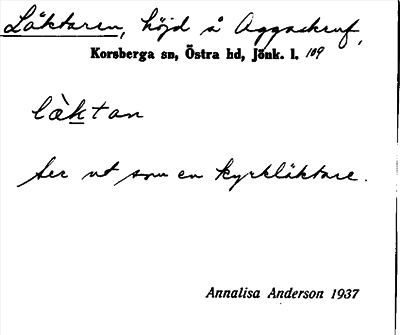 Läktaren, höjd å Aggaskruf,
Korsberga sn, Östra hd, Jönk. l. 109
lὰktan
Ser ut som en kyrkläktare.
Annalisa Anderson 1937